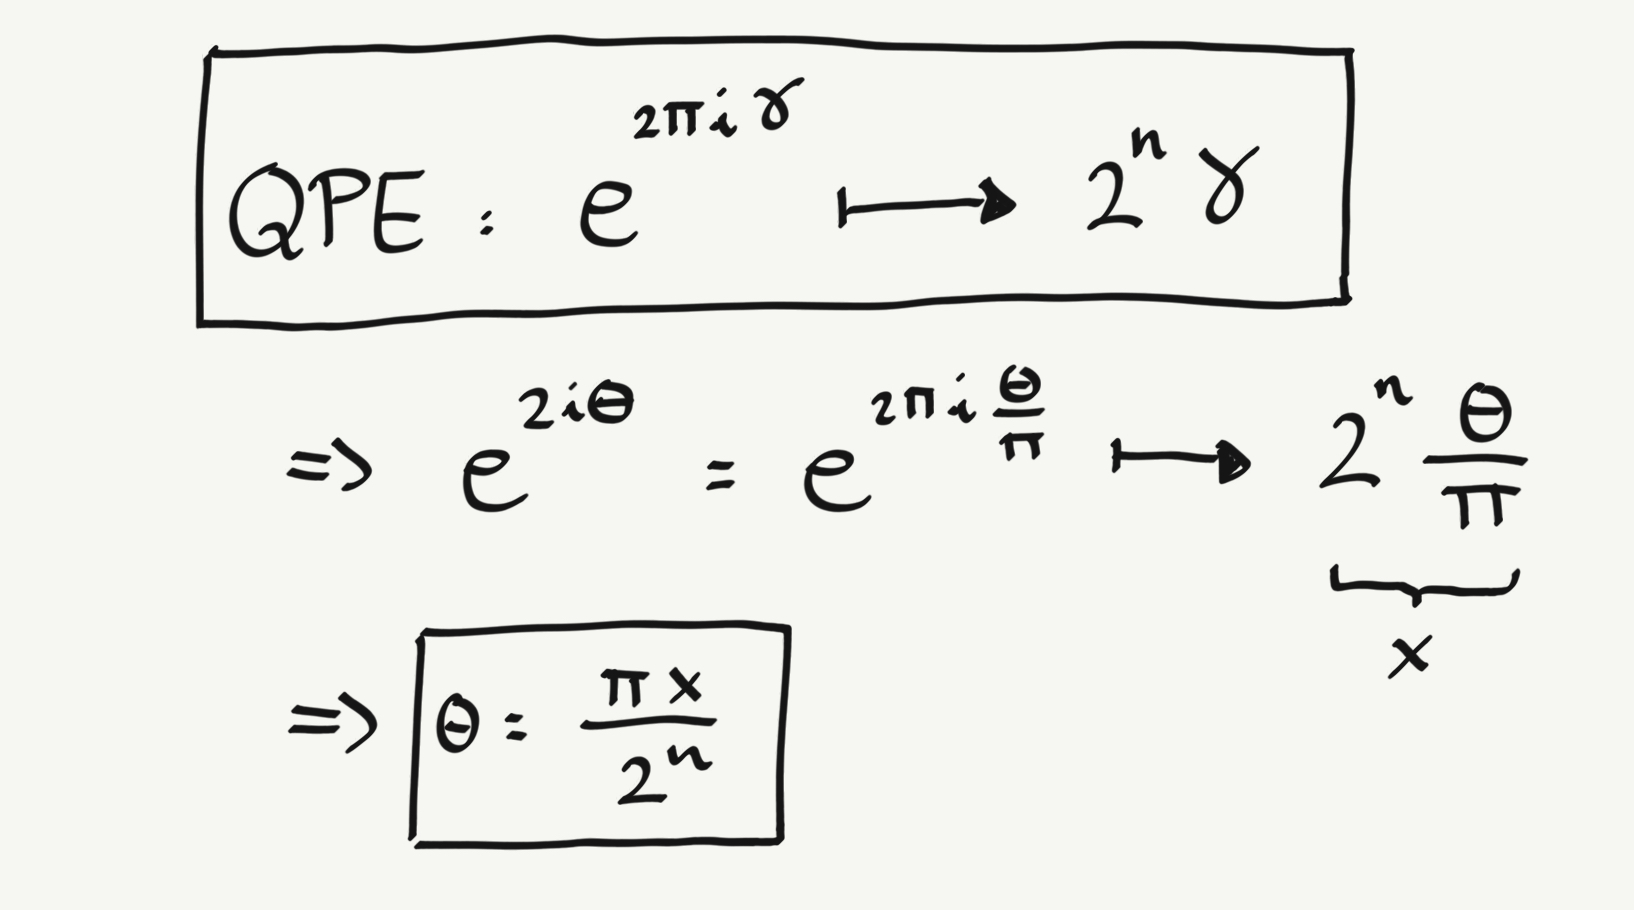 QPE : e^{2πiγ} ↦ 2^n γ
=> e^{2iθ} = e^{2πi θ/π} ↦ 2^n θ/π
x
=> θ = πx/2^n